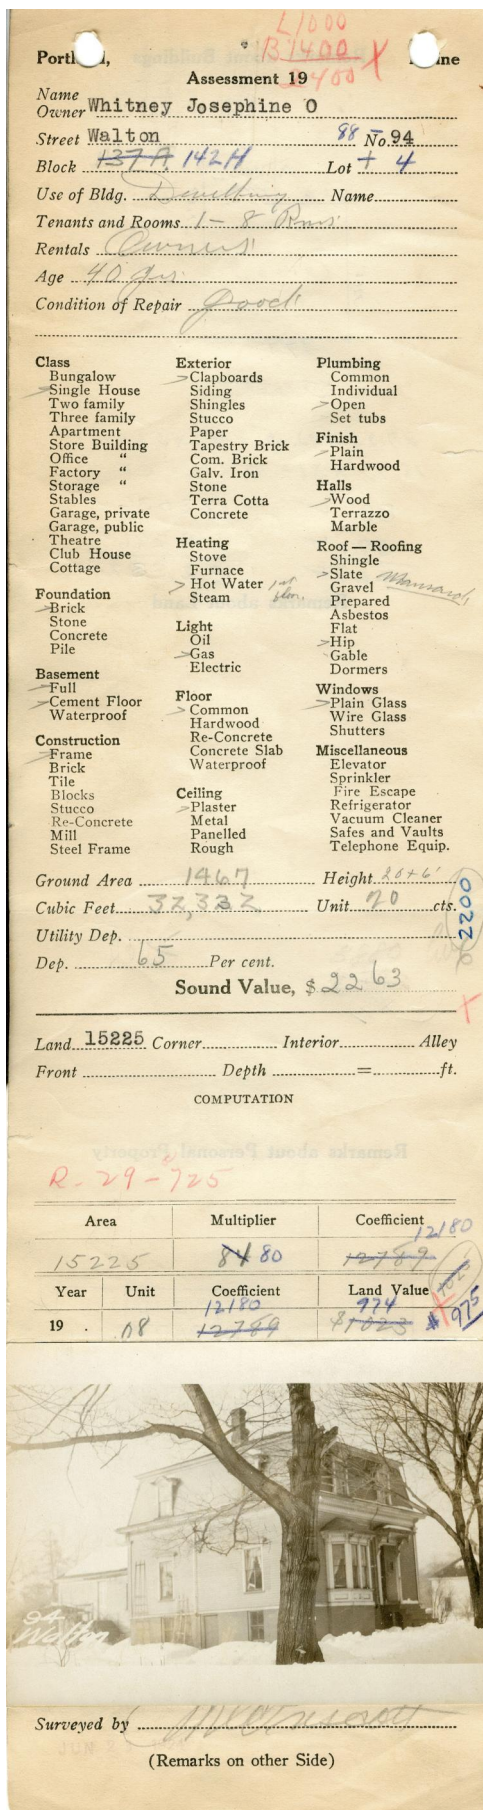 L 1000
B 1400 X
2400
Portland, Maine
Assessment 19
Name
Owner Whitney Josephine O
Street Walton 88 - No. 94
Block 137 A 142 H Lot + 4
Use of Bldg. Dwelling Name
Tenants and Rooms 1 - 8 Rms
Rentals Owners
Age 40 yrs
Condition of Repair good
Class
Bungalow
Single House
Two family
Three family
Apartment
Store Building
Office "
Factory "
Storage "
Stables
Garage, private
Garage, public
Theatre
Club House
Cottage
Foundation
Brick
Stone
Concrete
Pile
Basement
Full
Cement Floor
Waterproof
Construction
Frame
Brick
Tile
Blocks
Stucco
Re-Concrete
Mill
Steel Frame
Exterior
Clapboards
Siding
Shingles
Stucco
Paper
Tapestry Brick
Com. Brick
Galv. Iron
Stone
Terra Cotta
Concrete
Heating
Stove
Furnace
Hot Water 1st
Steam
Light
Oil
Gas
Electric
Floor
Common
Hardwood
Re-Concrete
Concrete Slab
Waterproof
Ceiling
Plaster
Metal
Panelled
Rough
Plumbing
Common
Individual
Open
Set tubs
Finish
Plain
Hardwood
Halls
Wood
Terrazzo
Marble
Roof — Roofing
Shingle
Slate Mansard
Gravel
Prepared
Asbestos
Flat
Hip
Gable
Dormers
Windows
Plain Glass
Wire Glass
Shutters
Miscellaneous
Elevator
Sprinkler
Fire Escape
Refrigerator
Vacuum Cleaner
Safes and Vaults
Telephone Equip.
Ground Area 1467 Height 20+6'
Cubic Feet 32,332 Unit 20 cts.
2200
Utility Dep.
Dep. 65 Per cent.
Sound Value, $ 2263
X
Land 15225 Corner Interior Alley
Front Depth = ft.
COMPUTATION
R-29-725
Area Multiplier Coefficient
12180
15225 84 80 12789
Year Unit Coefficient Land Value
12180 974
19 .08 12789 $1023 $ 975
94
Walton
Surveyed by
JUN
(Remarks on other Side)